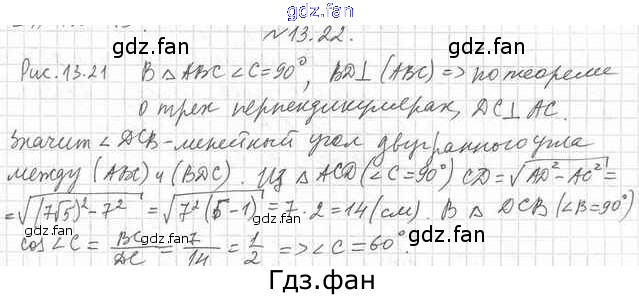 gdz.fan
№13.22.
gdz.fan gdz.fan
Рис. 13.21 В △ABC ∠C=90°, BD⊥(ABC) => по теореме
о трех перпендикулярах, DC⊥AC.
Значит ∠DCB - линейный угол двугранного угла
между (ABC) и (BDC). Из △ACD (∠C=90°) CD=√AD²-AC² =
=√(7√5)²-7² = √7²(5-1) = 7·2=14(см). В △DCB (∠B=90°)
gdz.fan
cos∠C = BC/DC = 7/14 = 1/2 => ∠C=60°.
gdz.fan gdz.fan
Гдз.фан